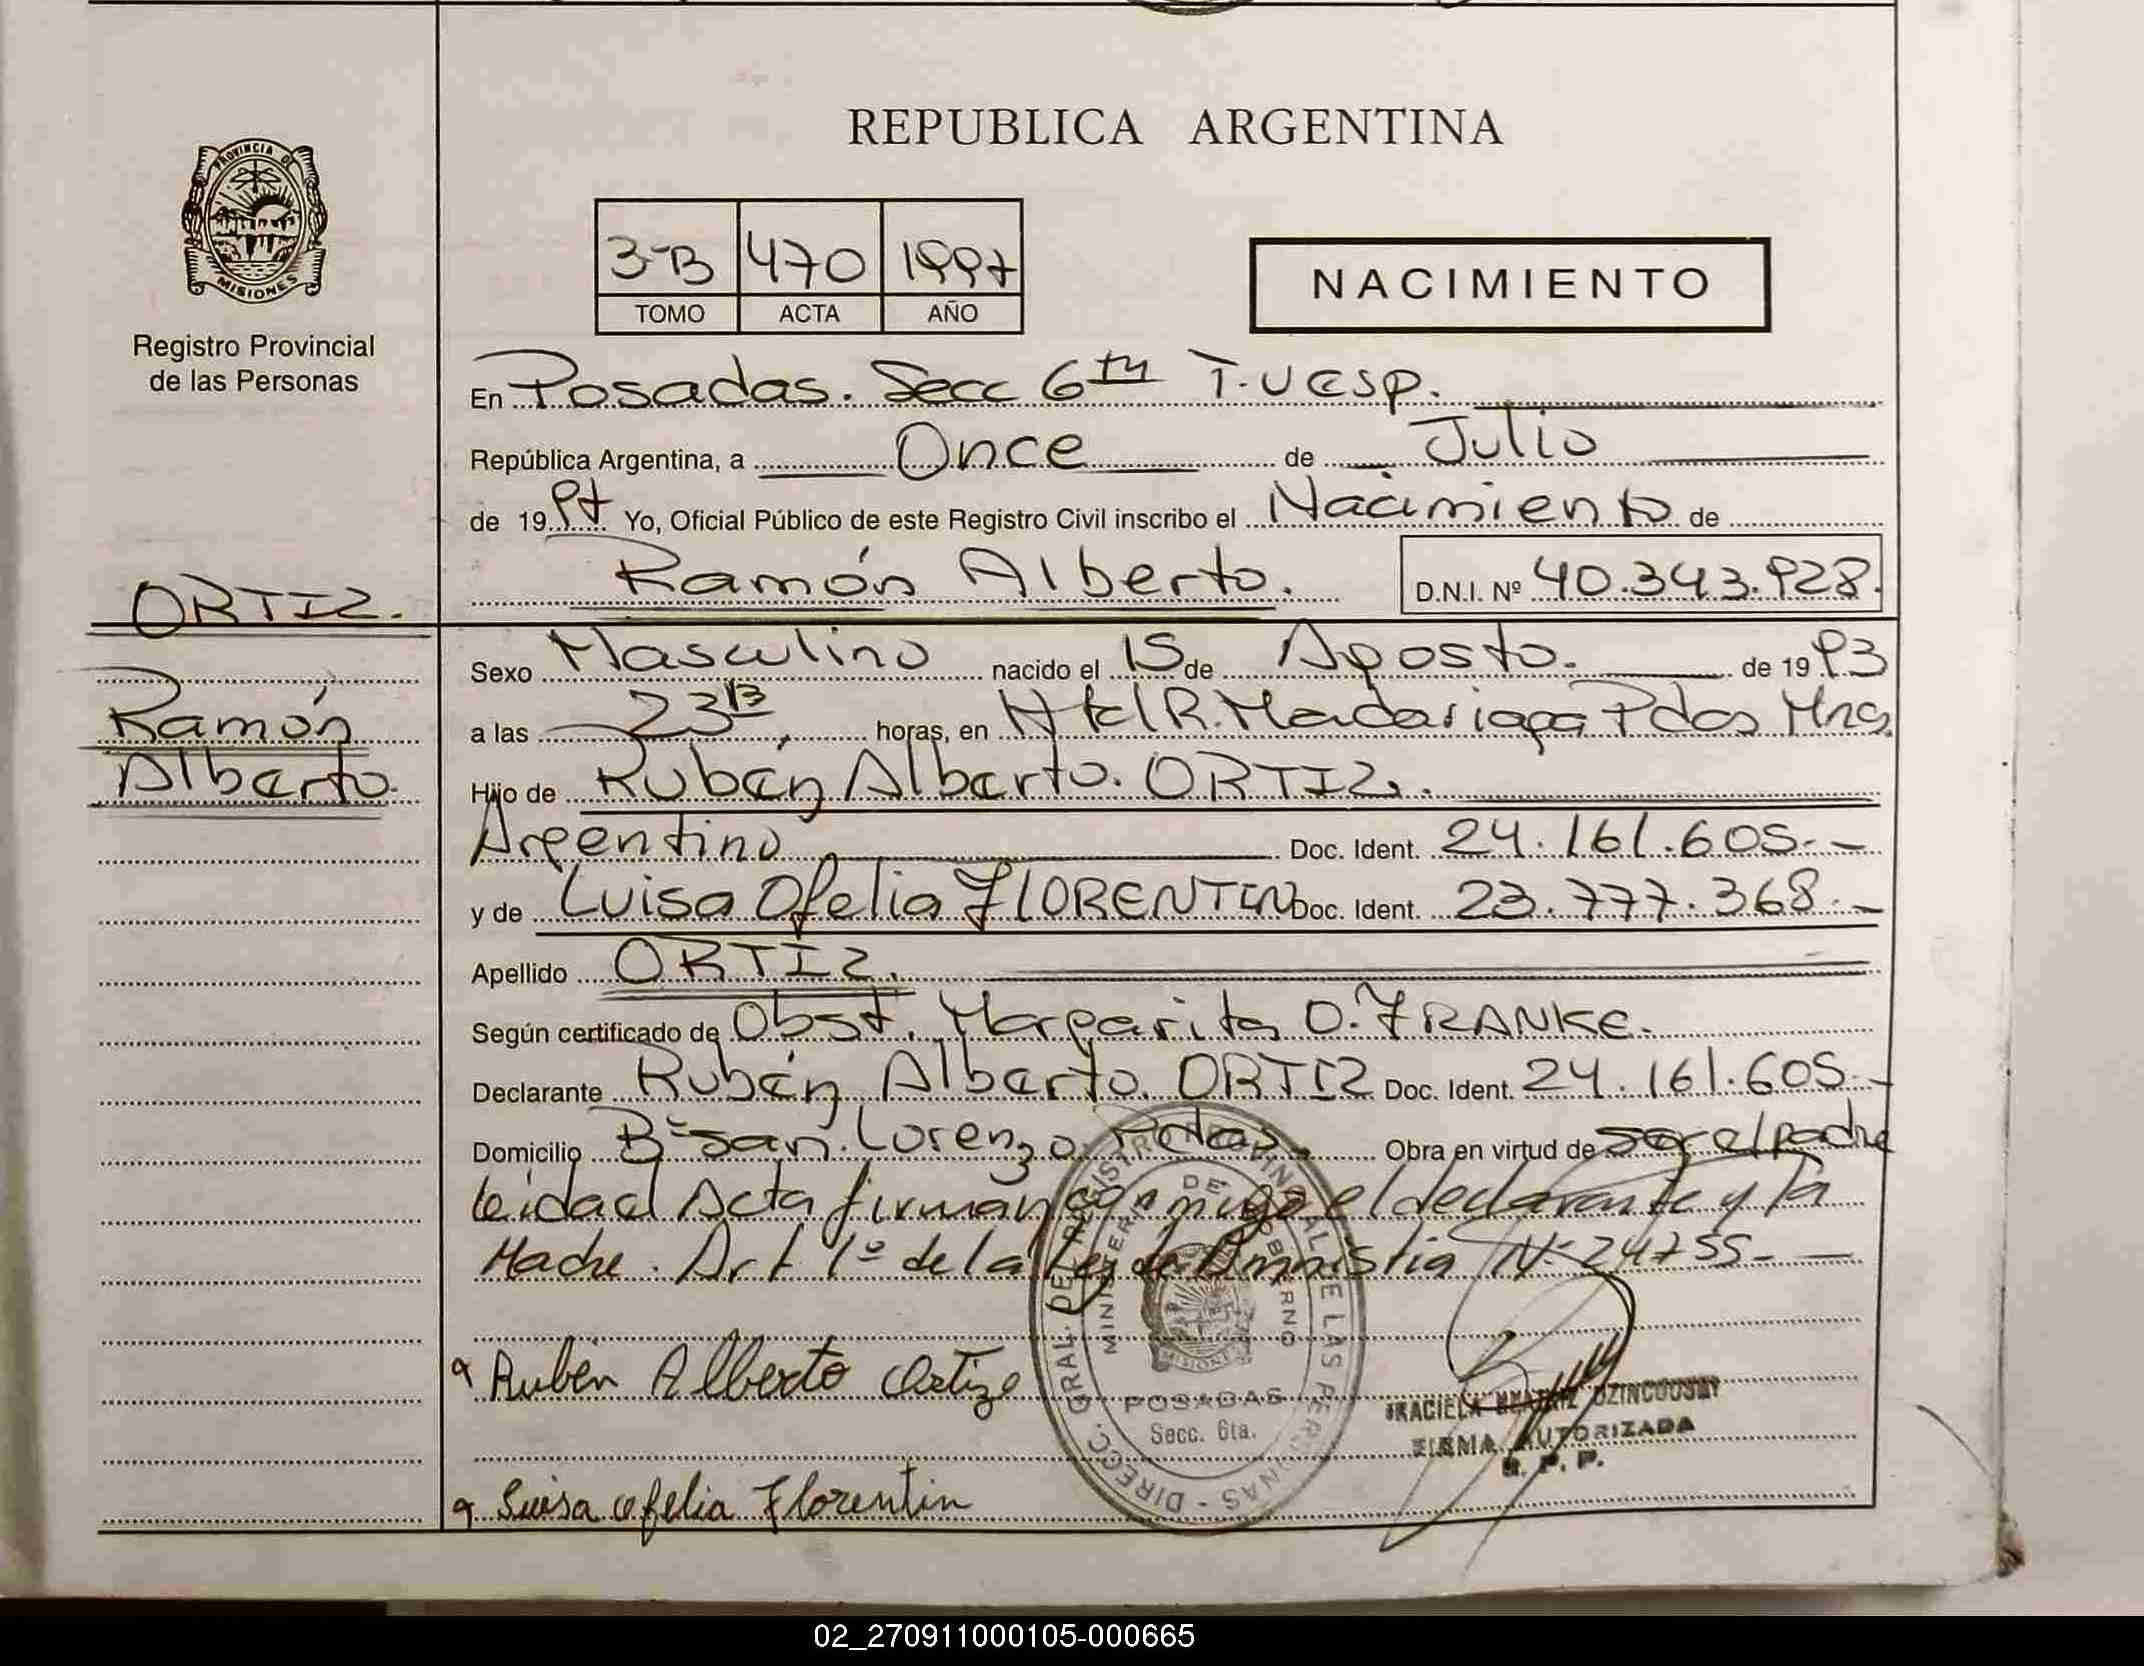 REPUBLICA ARGENTINA
PROVINCIA DE
MISIONES
Registro Provincial
de las Personas
3-B 470 1997
TOMO ACTA AÑO
NACIMIENTO
En Posadas. Secc 6ta T. Vesp.
República Argentina, a Once de Julio
de 1997 Yo, Oficial Público de este Registro Civil inscribo el Nacimiento de
Ramón Alberto. D.N.I. Nº 40.343.928.
ORTIZ.
Ramón
Alberto.
Sexo Masculino nacido el 15 de Agosto. de 1993
a las 23 13 horas, en Htal R. Madariaga Pdas Mns.
Hijo de Rubén Alberto. ORTIZ.
Argentino Doc. Ident. 24.161.605.-
y de Luisa Ofelia FLORENTIN Doc. Ident. 23.777.368.-
Apellido ORTIZ.
Según certificado de Obst. Margarita O. FRANKE.
Declarante Rubén Alberto. ORTIZ Doc. Ident. 24.161.605.-
Domicilio Bº San Lorenzo. Pdas. Obra en virtud de ser el padre
leida el Acta firman conmigo el declarante y la
Madre. Art 1º de la Ley de Amnistia Nº 24755.-
Rubén Alberto Ortiz
Luisa Ofelia Florentin
DIRECC. GRAL. DEL REGISTRO PROVINCIAL DE LAS PERSONAS
MINISTERIO DE GOBIERNO
MISIONES
POSADAS
Secc. 6ta.
GRACIELA BEATRIZ
FIRMA AUTORIZADA
R. P. P.
02_270911000105-000665